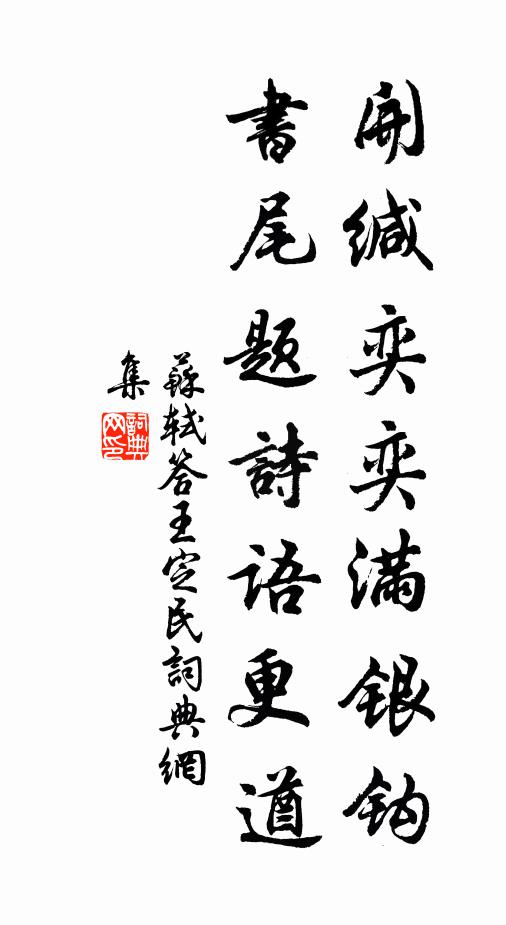 開缄奕奕满银钩
書尾題詩語更遒
蘇軾答王定民詞典網
集
詞典網印